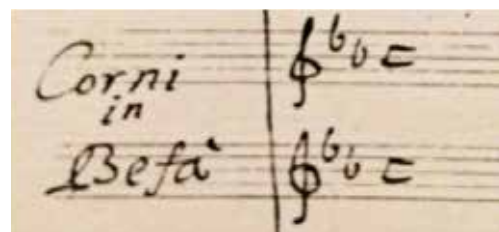 Corni
in
Befà